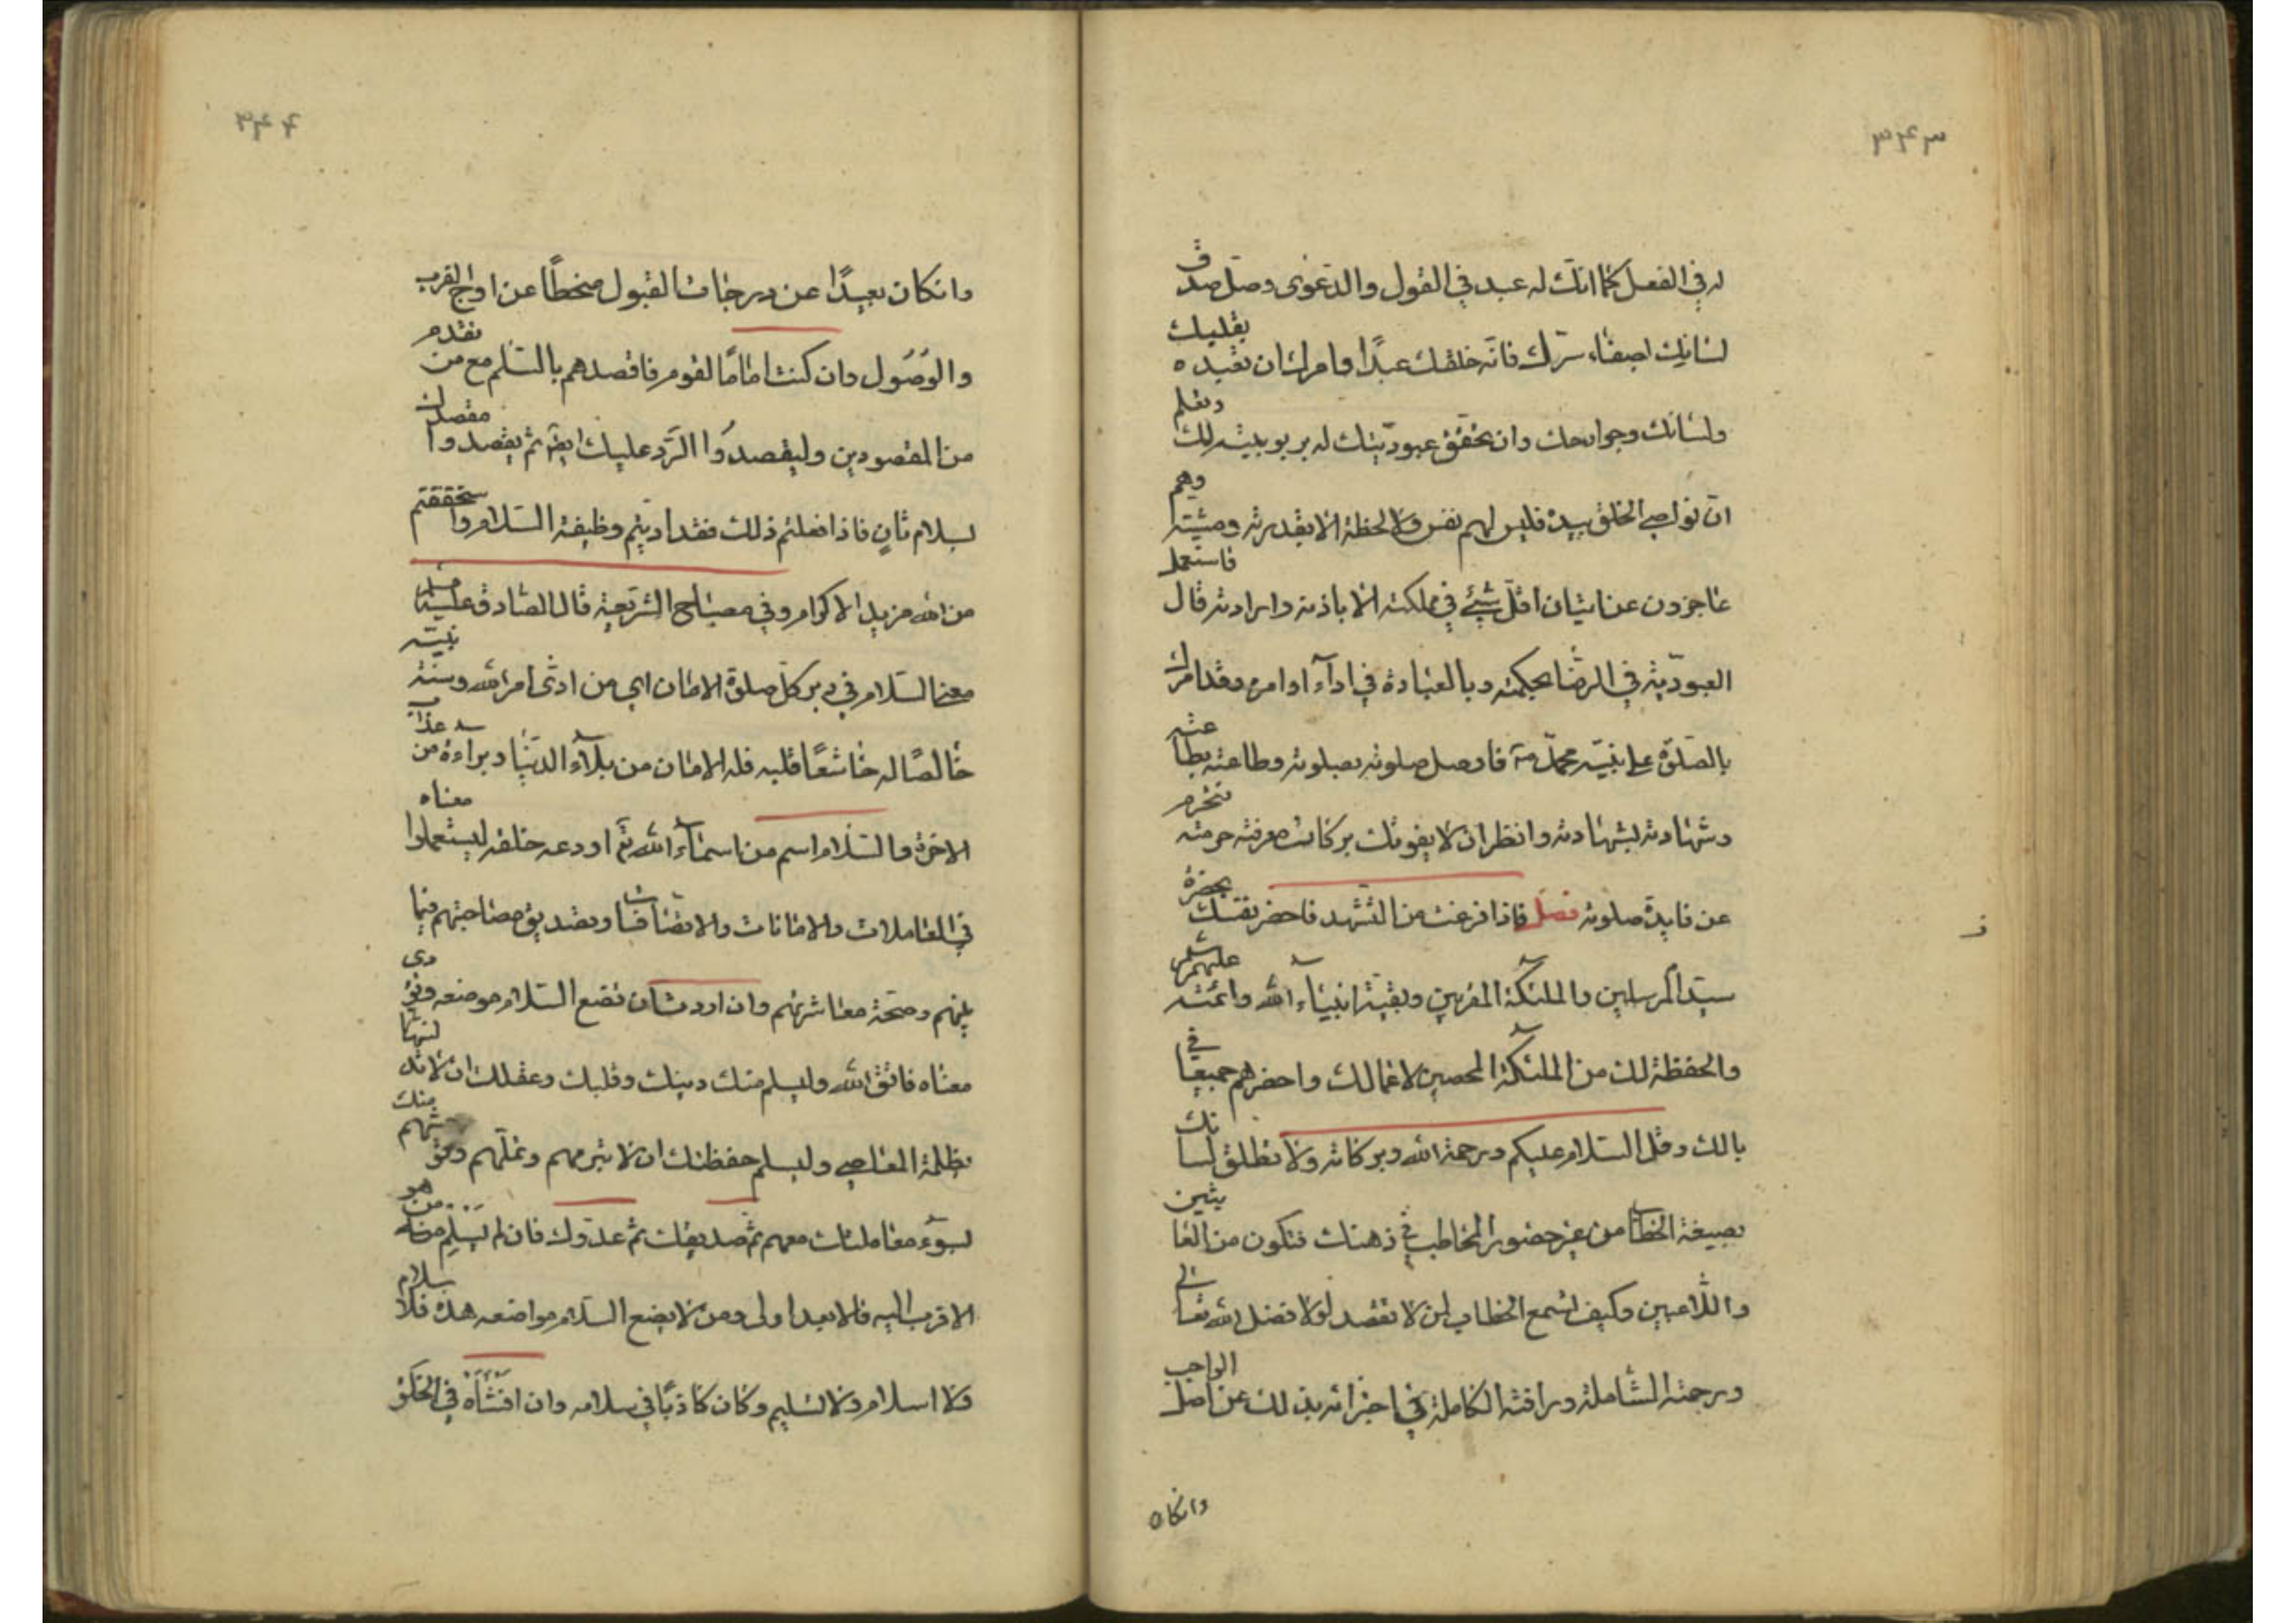 ٣٤٣
له في الفعل كما انّك له عبد في القول والدّعوى وصل صدق
لسانك بصفاء سرّك فانّه خلقك عبدًا وامرك ان تعبده بقلبك
ولسانك وجوارحك وان تحقّق عبوديّتك له بربوبيته لك وتعلم
انّ نواصي الخلق بيده فليس لهم نفس ولا لحظة الا بقدرته ومشيّته وهم
عاجزون عن اتيان اقلّ شيئ في مملكته الا باذنه وارادته قال فاستعمل
العبوديّة في الرضا بحكمته وبالعبادة في اداء اوامره وقد امرك
بالصّلوة على نبيّه محمّد فاوصل صلوته بصلوته وطاعته بطاعته
وشهادته بشهادته وانظر ان لا يفوتك بركات معرفة حرمته فتحرم
عن فايدة صلوته فصل فاذا فرغت من التّشهد فاحضر نفسك بحضرة
سيّد المرسلين والملئكة المقربين وبقيّة انبياء الله وائمّته عليهم السلم
والحفظة لك من الملئكة المحصين لاعمالك واحضرهم جميعا في
بالك وقل السّلام عليكم ورحمة الله وبركاته ولا تطلق لسانك
بصيغة الخطاب من غير حضور المخاطب في ذهنك فتكون من العابثين
واللّاعبين وكيف تسمع الخطاب لمن لا تقصد لولا فضل الله تعالى
ورحمته الشّاملة ورافته الكاملة في اجزائه بذلك عن اصل الواجب
وانكان
٣٤٤
وانكان بعيدًا عن درجات القبول منحطًّا عن اوج القرب
والوُصُول وان كنت امامًا لقوم فاقصدهم بالسّلم مع من تقدم
من المقصودين وليقصدُوا الرَّد عليك ايضا ثم يقصدوا مقصدك
بسلام ثانٍ فاذا فعلتم ذلك فقد اديتم وظيفة السّلام واستحققتم
من الله مزيد الاكرام وفي مصباح الشّريعة قال الصّادق عليه السلم
معنى السّلام في دبر كلّ صلوة الامان اي من ادّى امر الله وسنّة نبيّه
خالصًا له خاشعًا قلبه فله الامان من بلاء الدّنيا وبراءة من عذاب
الاخرة والسّلام اسم من اسماء الله تع اودعه خلقه ليستعملوا معناه
في المعاملات والامانات والانصافات وتصديق مصاحبتهم فيما
بينهم وصحّة معاشرتهم وان اردت ان تضع السّلام موضعه وتؤدى
معناه فاتّق الله وليسلم منك دينك وقلبك وعقلك ان لا تدنسها
بظلمة المعاصي وليسلم حفظتك ان لا تبرمهم وتملّهم وتوحشهم منك
بسوء معاملتك معهم ثم صديقك ثم عدوّك فان لم يسلم منه من هو
الاقرب اليه فالابعد اولى ومن لا يضع السّلام مواضعه هذه فلا سلام
ولا اسلام ولا تسليم وكان كاذبًا في سلامه وان افشاه في الخلق